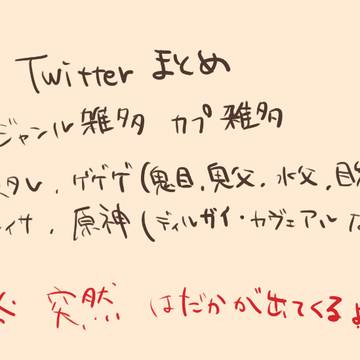 Twitter まとめ
ジャンル雑多 カプ雑多
スタレ、ゲゲゲ(鬼目、鬼父、水父、目
イサ、原神(ディルガイ・カヴェアル
突然 はだかが出てくるよ